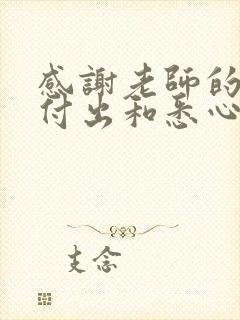 感謝老師的
付出和悉心
支念